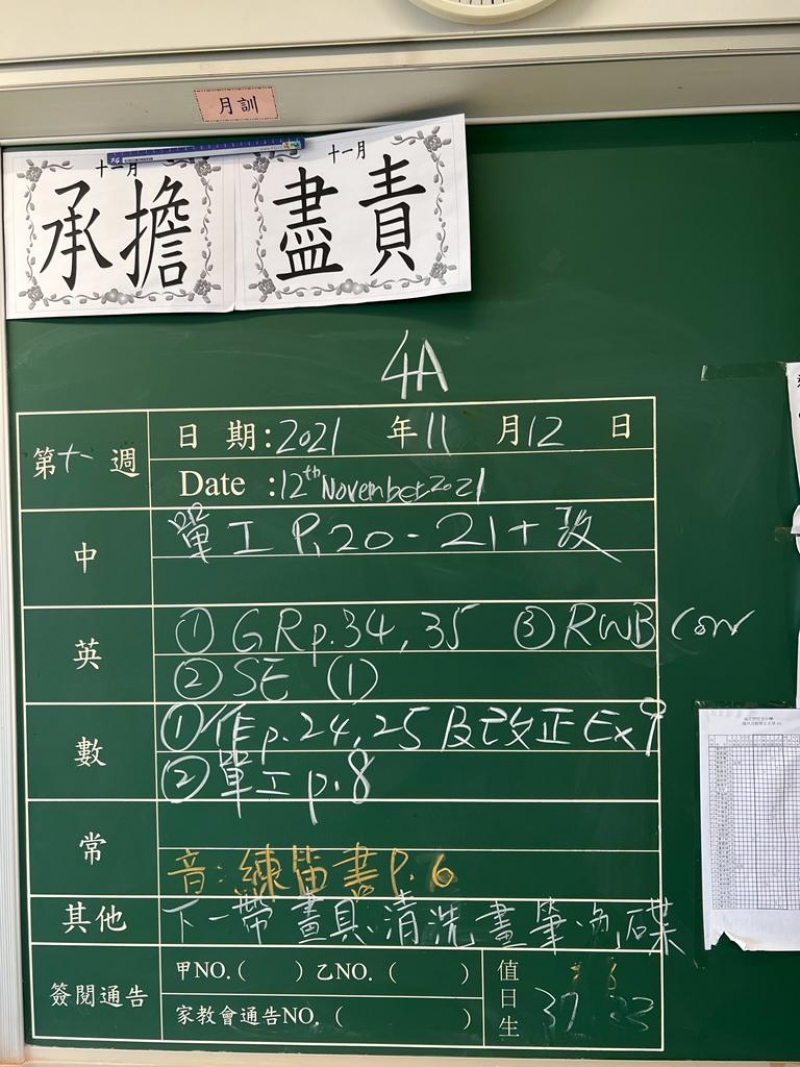 月訓
十一月
承擔
十一月
盡責
4A
第十一週
日期:2021年11月12日
Date :12th November 2021
中
單工 P.20-21+改
英
① GR p.34,35 ③ RWB Corr
② SE (1)
數
①作p.24,25 及改正Ex9
②單工p.8
常
音:練笛書P.6
其他
下一帶畫具.清洗畫筆.色碟
簽閱通告
甲NO.( ) 乙NO.( )
家教會通告NO.( )
值日生
37